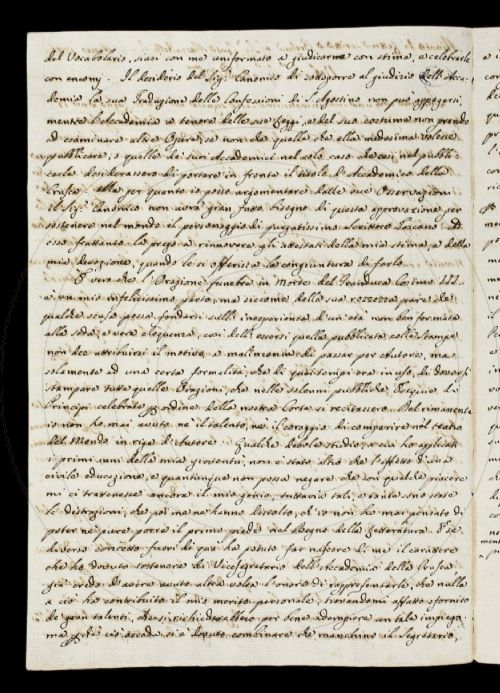 del Vocabolario, siasi con me uniformato a giudicarne con stima, e celebrarle
con encomj. Il desiderio del Sig.r Canonico di sottoporre al giudizio dell'Acca-
demia la sua Traduzione delle Confessioni di S. Agostino non può appagarsi,
mentre l'Accademia a tenore delle sue Leggi, e del suo costume non prende
ad esaminare altre Opere, se non che quelle che ella medesima volesse
pubblicare, o quelle de' suoi Accademici nel solo caso che essi nel pubbli-
carle desiderassero di portare in fronte il titolo d'Accademico della
Crusca. Ma per quanto io posso argomentare dalle sue Osservazioni
il Sig.r Canonico non avrà gran fatto bisogno di questa approvazione per
sostenere nel mondo il personaggio di purgatissimo Scrittore Toscano. Ad
esso frattanto la prego a rinnovare gli attestati della mia stima, e della
mia devozione, quando le si offerisca la congiuntura di farlo.
È vero che l'Orazione funebre in Morte del Granduca Cosimo III.
è un mio infelicissimo parto, ma siccome della sua rozzezza pare che
qualche scusa possa fondarsi sull'inesperienza d'un'età non ben formata
alla soda, e vera eloquenza, così dell'essersi quella pubblicata colle Stampe
non dee attribuirsi il motivo a malinconia di passar per Autore, ma
solamente ad una certa formalità, che di quei tempi era in uso, di doversi
stampare tutte quelle Orazioni, che nelle solenni pubbliche Esequie di
Principi celebrate per ordine della nostra Corte si recitassero. Del rimanente
io non ho mai avuto ne il talento, ne il coraggio di comparire nel teatro
del Mondo in riga d'Autore. Qualche debole studio, a cui ho applicati
i primi anni della mia gioventù, non è stato altro che l'effetto d'una
civile educazione, e quantunque non possa negare che con qualche piacere
mi ci trattenesse ancora il mio genio, tuttavia tali, e tante son state
le distrazioni, che poi me ne hanno distolto, ch'io non ho mai pensato di
poter ne pure porre il primo piede nel Regno della Letteratura. Se
diverso concetto fuori di qua ha potuto far nascere di me il carattere
che ho dovuto sostenere di Vicesegretario dell'Accademia della Crusca
già credo d'avere avuto altra volta l'onore di rappresentarle, che nulla
a ciò ha contribuito il mio merito personale, trovandomi affatto sfornito
de' gran talenti, che si richiedrebbero per bene adempiere un tale impiego;
ma che ciò accada si è dovuto combinare che manchino al Segretario,